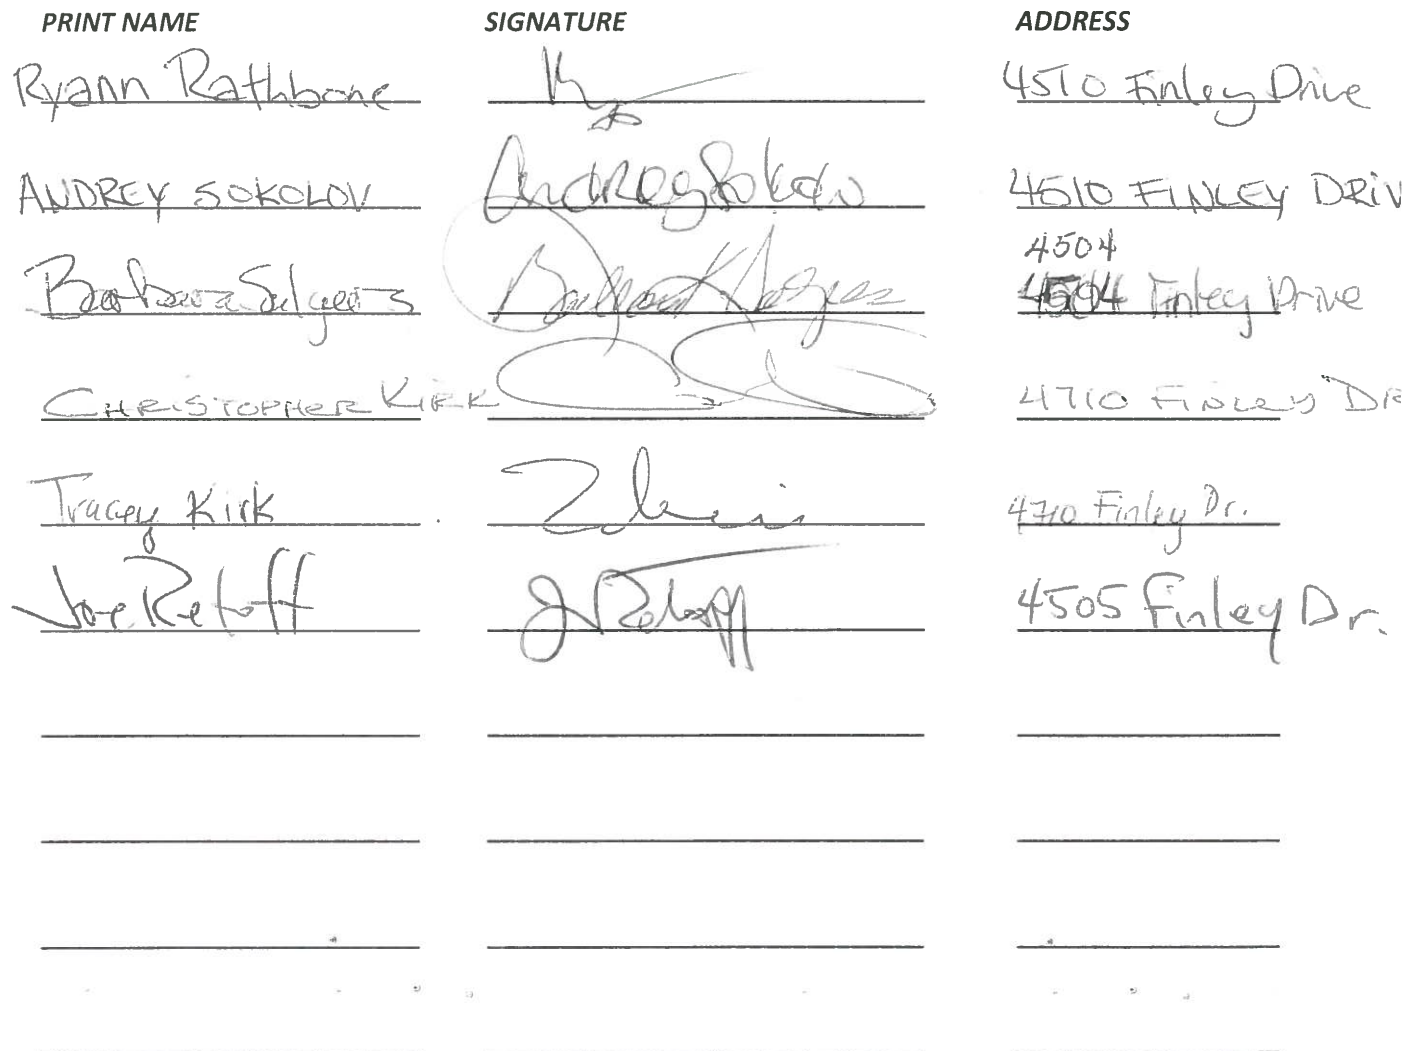 PRINT NAME SIGNATURE ADDRESS
Ryann Rathbone 4510 Finley Drive
ANDREY SOKOLOV Andrey Sokolov 4510 FINLEY DRIV
4504
Barbara Salyers 4504 Finley Drive
CHRISTOPHER KIRK 4710 FINLEY DR
Tracey Kirk 4710 Finley Dr.
Joe Retoff 4505 Finley Dr.